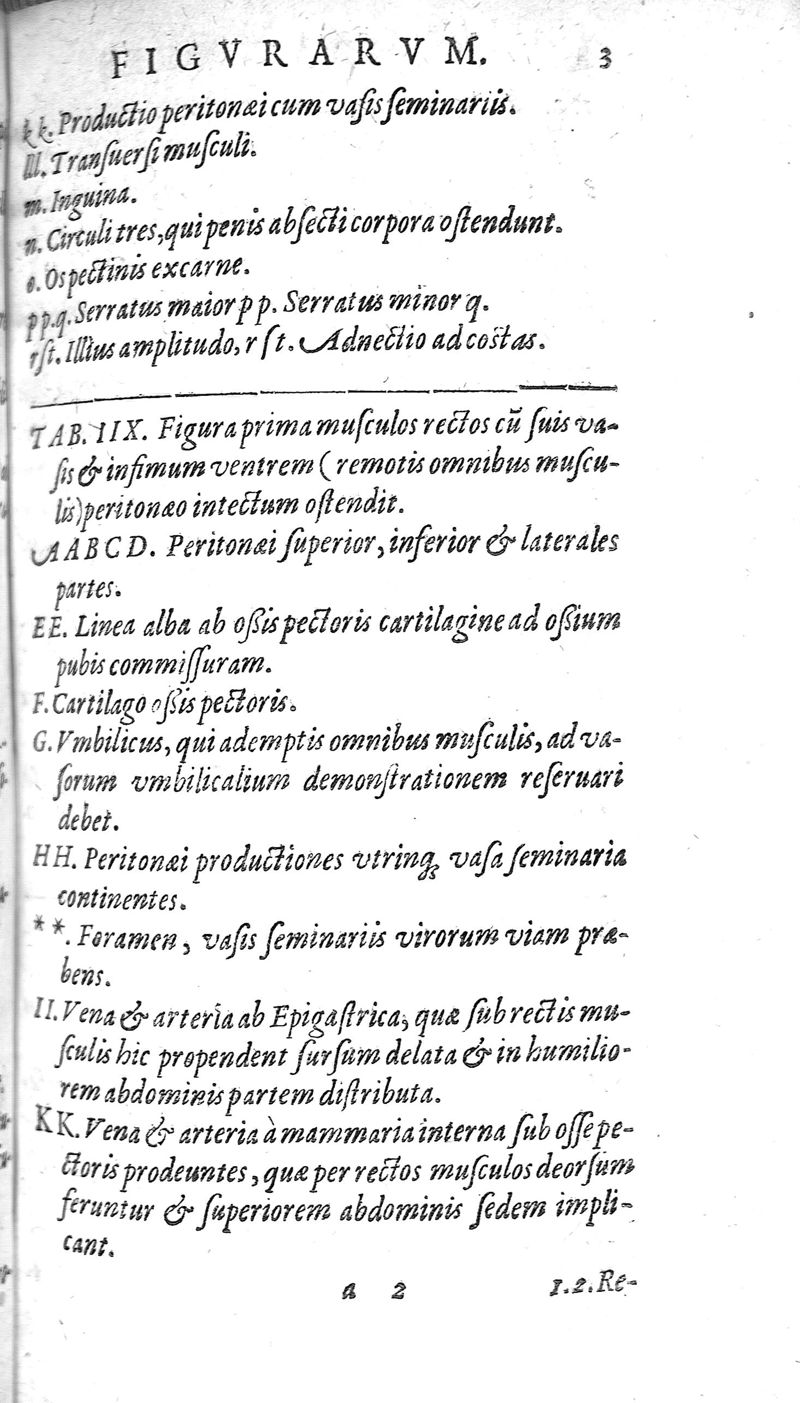 FIGVRARVM. 3
kk. Productio peritonæi cum vasis seminariis.
lll. Transuersi musculi.
m. Inguina.
n. Circuli tres, qui penis absecti corpora ostendunt.
o. Os pectinis excarne.
pp.q. Serratus maior pp. Serratus minor q.
rst. Illius amplitudo, r st. Adnectio ad costas.
TAB. IIX. Figura prima musculos rectos cū suis va-
sis & infimum ventrem ( remotis omnibus muscu-
lis) peritonæo intectum ostendit.
AABCD. Peritonæi superior, inferior & laterales
partes.
EE. Linea alba ab ossis pectoris cartilagine ad ossium
pubis commissuram.
F. Cartilago ossis pectoris.
G. Vmbilicus, qui ademptis omnibus musculis, ad va-
sorum vmbilicalium demonstrationem reseruari
debet.
HH. Peritonæi productiones vtrinq; vasa seminaria
continentes.
**. Foramen, vasis seminariis virorum viam præ-
bens.
II. Vena & arteria ab Epigastrica, quæ sub rectis mu-
sculis hic propendent sursum delata & in humilio-
rem abdominis partem distributa.
KK. Vena & arteria à mammaria interna sub osse pe-
ctoris prodeuntes, quæ per rectos musculos deorsum
feruntur & superiorem abdominis sedem impli-
cant.
a 2 1.2. Re-